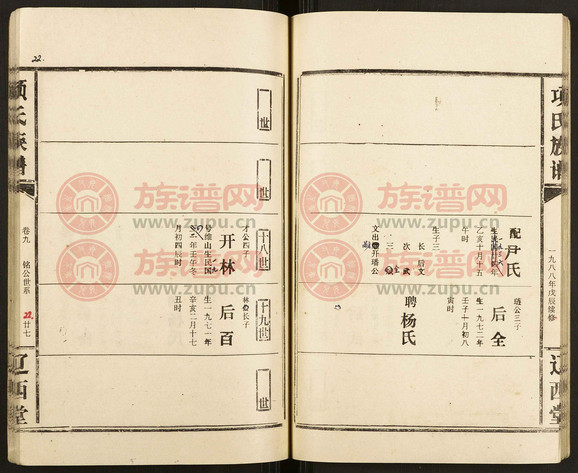 项氏族谱
一九八八年戊辰续修
辽西堂
配尹氏
乙亥十月十五
午时
生子三
长 后文
次 武
三 全
文出 升瑶公
琏公三子
后全
生一九七二年
壬子十月初八
寅时
聘杨氏
世
世
十八世
十九世
世
才公四子
开林
号维山生民国
年壬午冬
月初四辰时
林长子
后百
生一九七一年
辛亥二月十七
丑时
22
项氏族谱
卷九 铭公世系
廿七
辽西堂
族谱网
www.zupu.cn
族谱网
www.zupu.cn
族谱网
www.zupu.cn
族谱网
www.zupu.cn